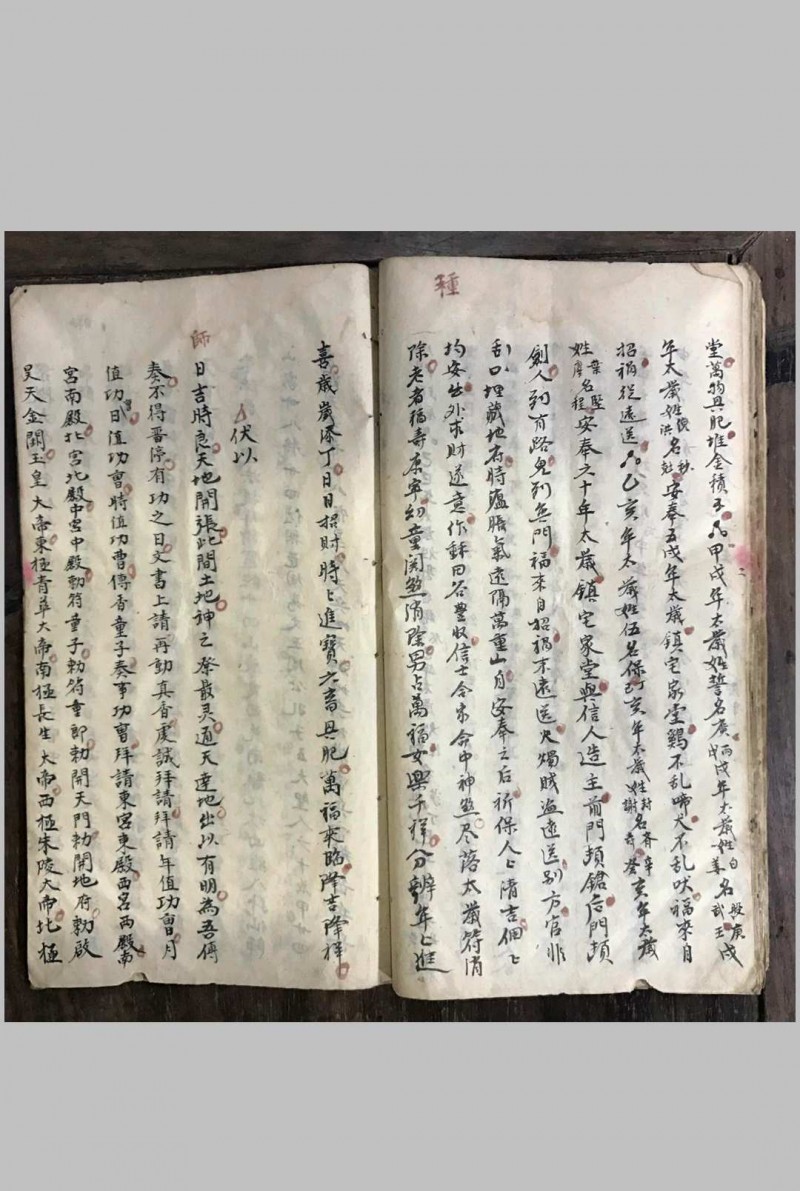 堂萬物具肥堆金積玉甲戌年太歲姓誓名廣丙戌年太歲姓白名
年太歲姓洪名安奉五戌年太歲鎮宅家堂鷄不乱啼犬不乱吠福來自
招禍從遠送乙亥年太歲姓伍名保丁亥年太歲姓封名齊辛亥年太歲
姓葉名堅安奉之十年太歲鎮宅家堂與信人造主前門頭後門頭
劍人到有路鬼到無門福來自招禍來遠送火燭賊盗遠送别方官非
口埋藏地府時瘟脹氣遠隔萬重山自安奉之后祈保人〻清吉個〻
均安出外求財遂意作耕田谷豐收信士合家命中神煞尽落太歲符消
種
除老者福壽康寧幼童関煞消除男占萬福女樂千祥分辦年〻進
喜歲歲添丁日日招財時〻進寶六畜具肥萬福來臨降吉降祥
伏以
師
日吉時良天地開張此間土地神之㝡灵通天達地出以有明為吾傳
奏不得畱停有功之日文書上請再動真香虔誠拜請拜請年值功曹月
值功曹日值功曹時值功曹傳香童子奏事功曹拜請東宮東殿西宮西殿南
宮南殿北宮北殿中宮中殿勅符童子勅符童郎勅開天門勅開地府勅啟
昊天金闕玉皇大帝東極青華大帝南極長生大帝西極朱陵大帝北極